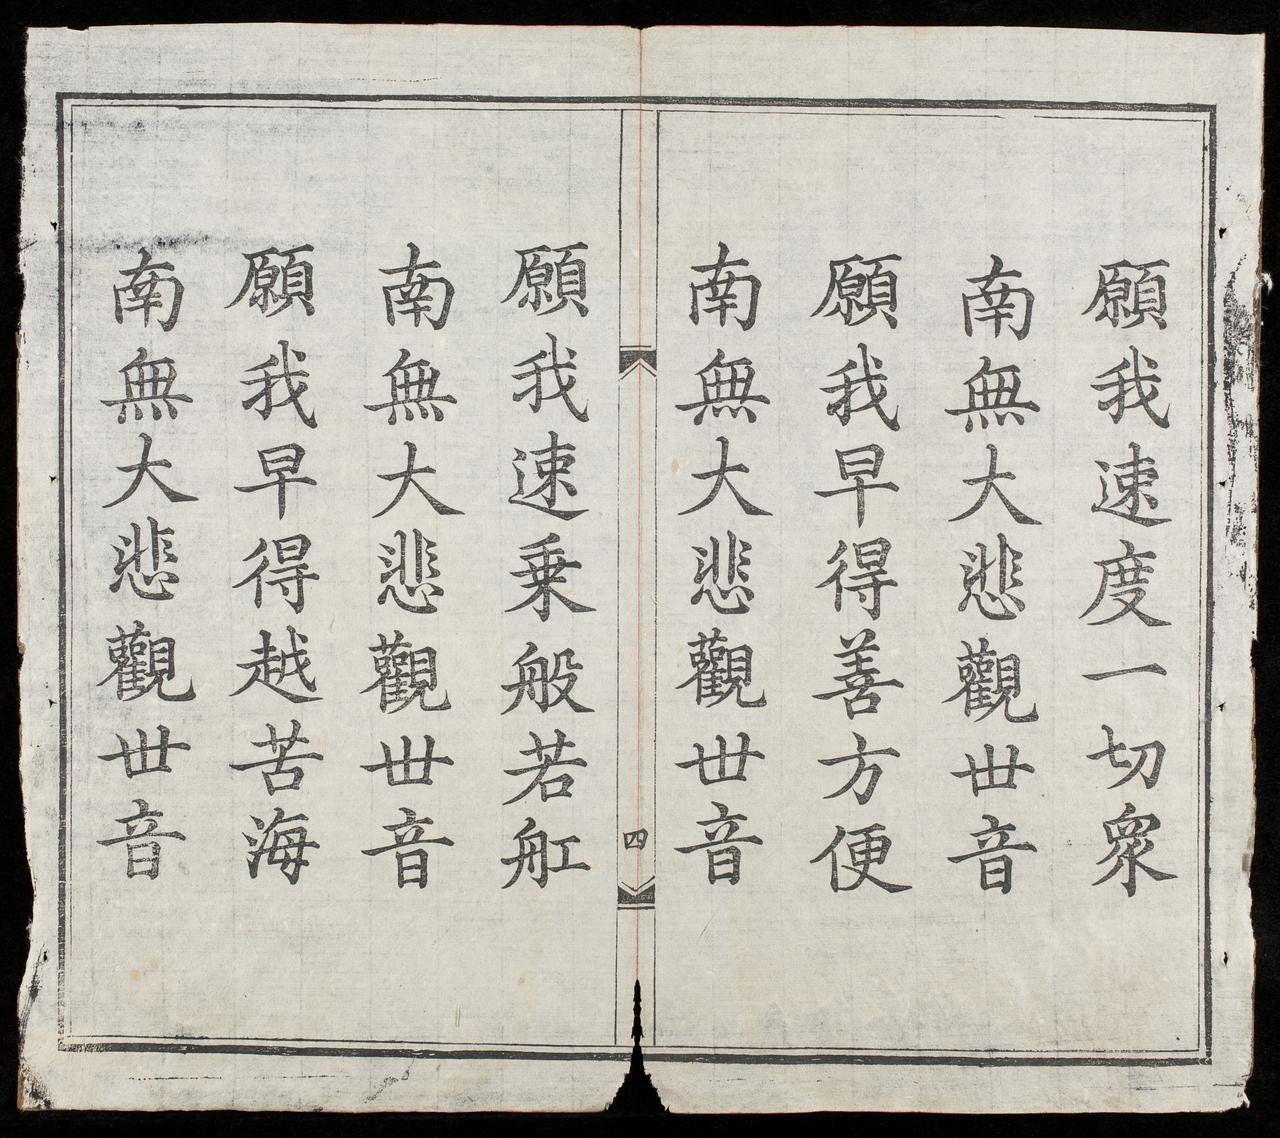 願我速度一切衆
南無大悲觀丗音
願我早得善方便
南無大悲觀丗音
四
願我速乗般若舡
南無大悲觀丗音
願我早得越苦海
南無大悲觀丗音